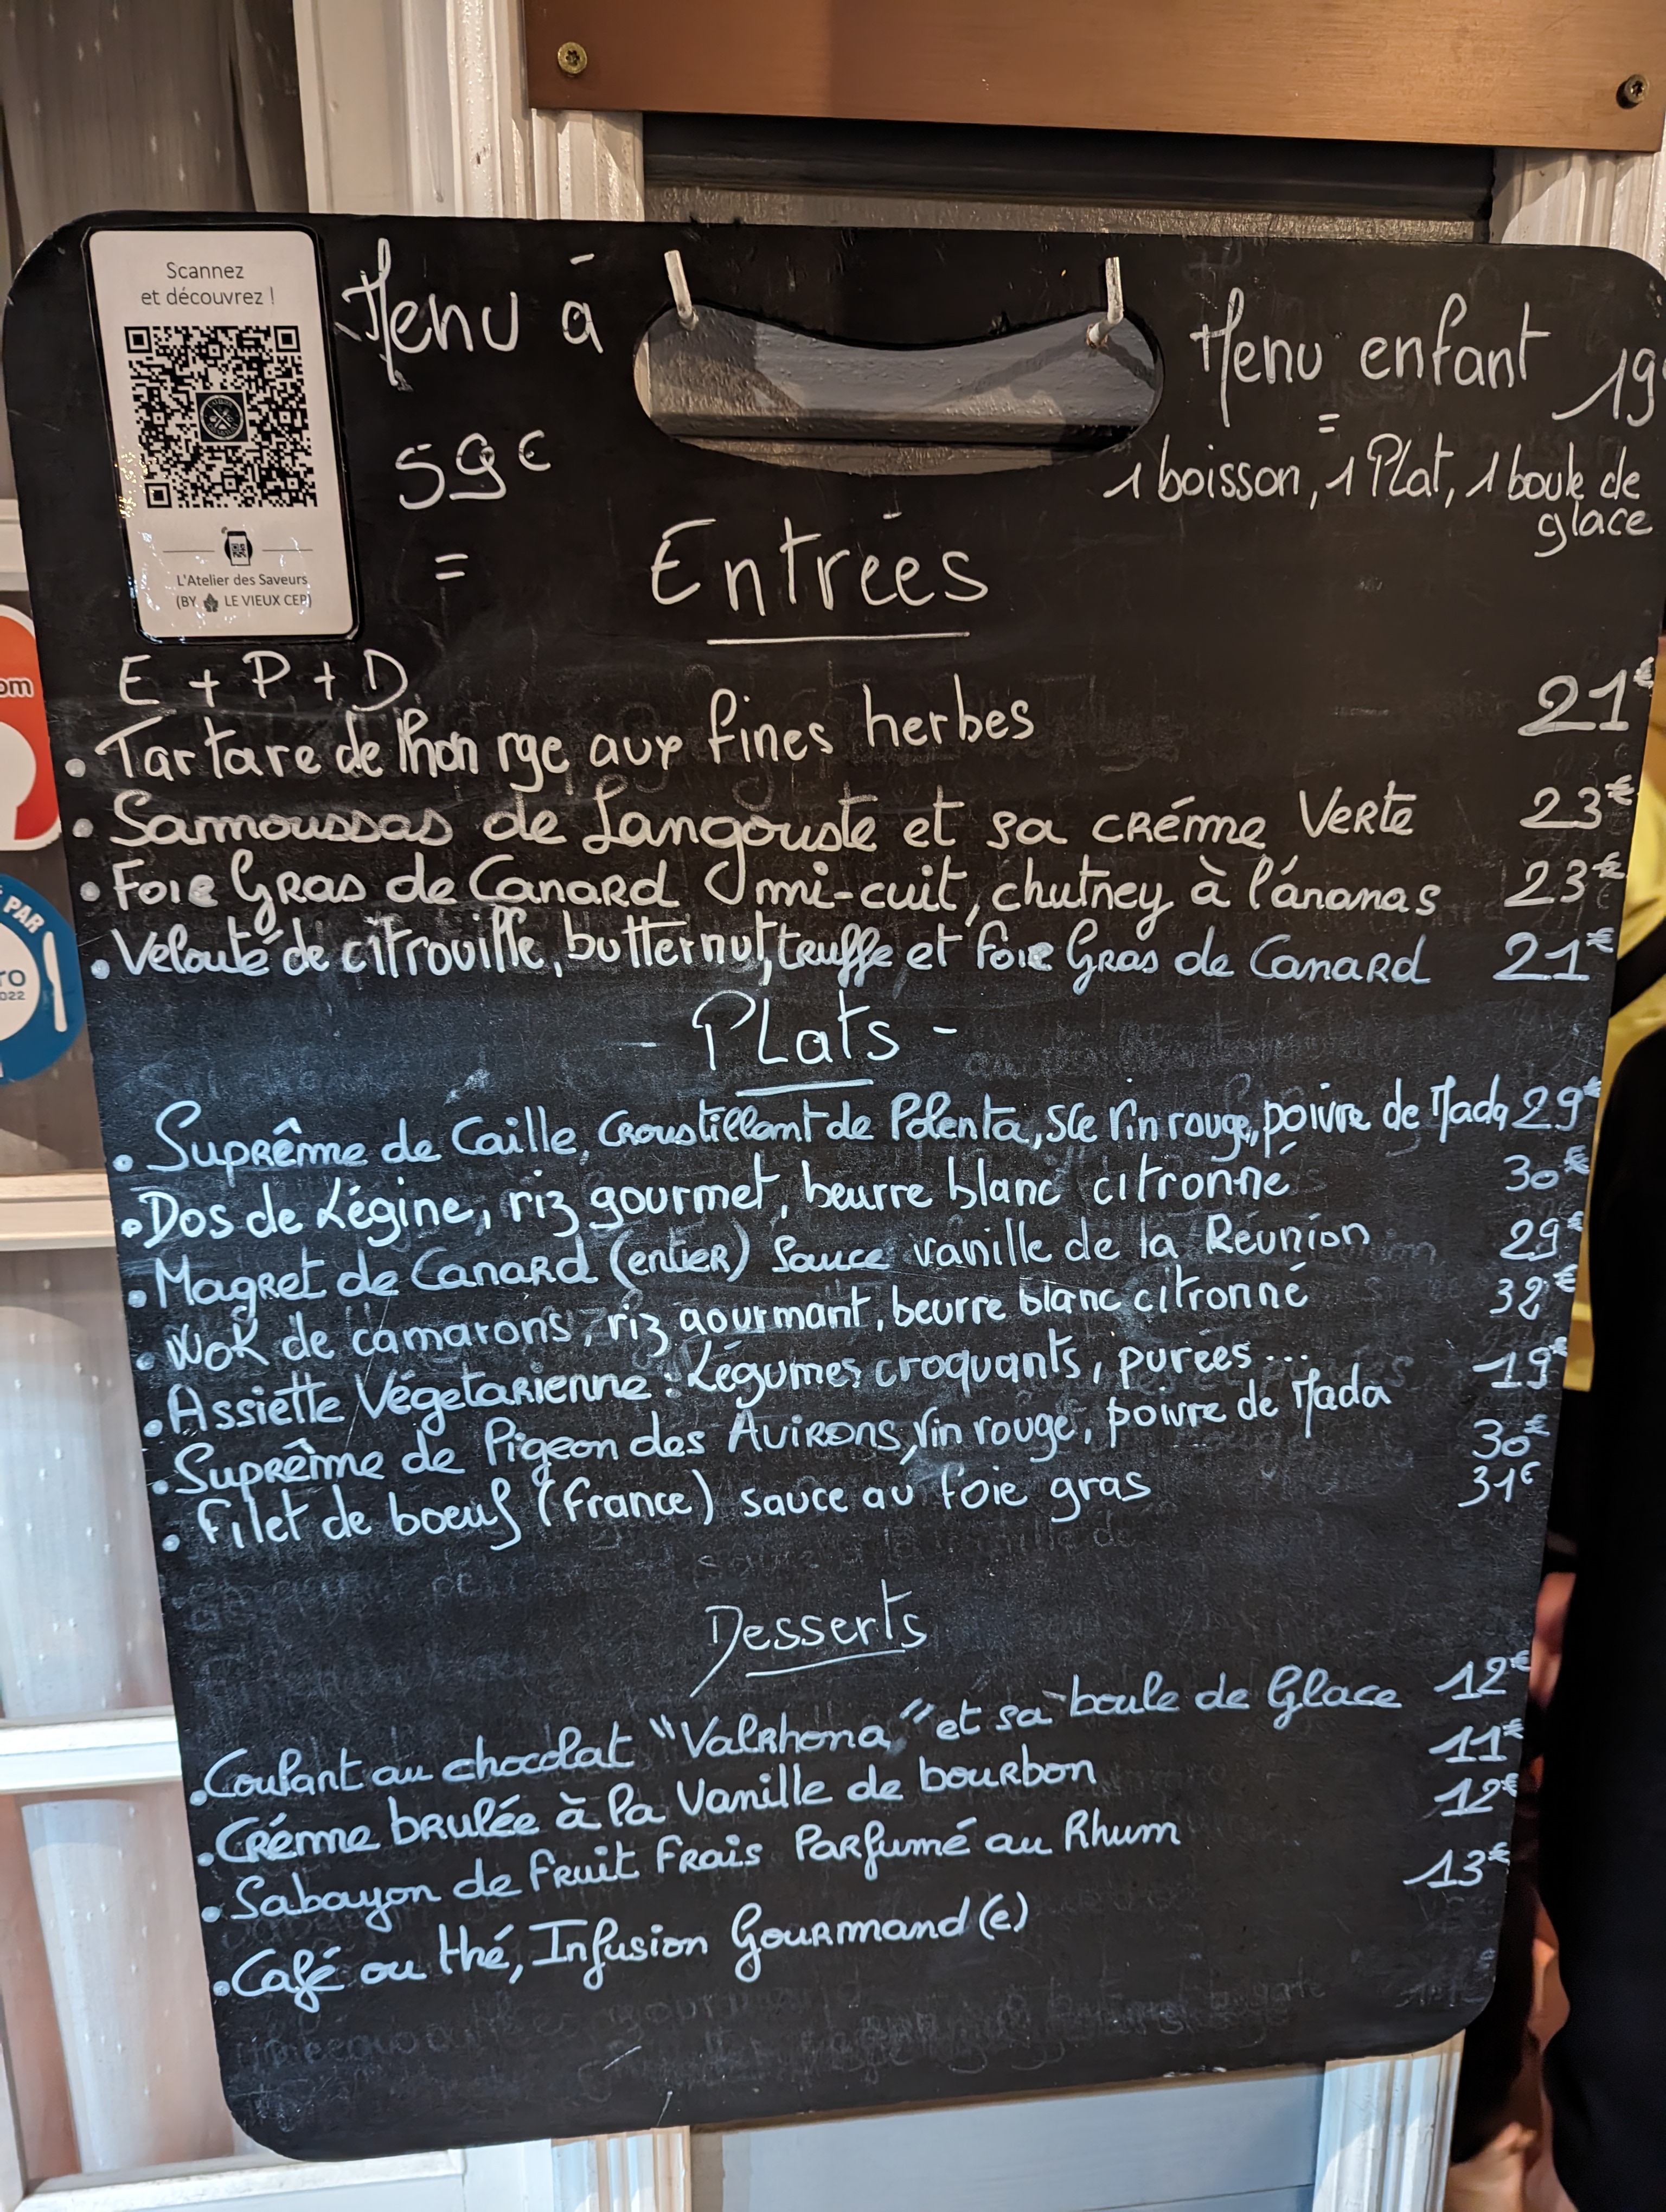 Scannez
et découvrez !
L'Atelier des Saveurs
(BY LE VIEUX CEP)
Menu à
59€
=
E + P + D
Menu enfant 19€
=
1 boisson, 1 Plat, 1 boule de
glace
Entrées
. Tartare de Thon rge aux fines herbes 21€
. Samoussas de Langouste et sa créme Verte 23€
. Foie Gras de Canard mi-cuit, chutney à l'ananas 23€
. Velouté de citrouille, butternut, truffe et foie Gras de Canard 21€
- Plats -
. Suprême de Caille, Croustillant de Polenta, sce Vin rouge, poivre de Mada 29€
. Dos de Légine, riz gourmet, beurre blanc citronné 30€
. Magret de Canard (entier) Sauce vanille de la Réunion 29€
. Wok de camarons, riz gourmant, beurre blanc citronné 32€
. Assiette Végétarienne : Légumes croquants, purées... 19€
. Suprême de Pigeon des Avirons, Vin rouge, poivre de Mada 30€
. Filet de boeuf (France) sauce au foie gras 31€
Desserts
. Coulant au chocolat "Valrhona" et sa boule de Glace 12€
. Créme brulée à la Vanille de bourbon 11€
. Sabayon de Fruit Frais Parfumé au Rhum 12€
. Café ou thé, Infusion Gourmand(e) 13€
om
PAR
ro
022